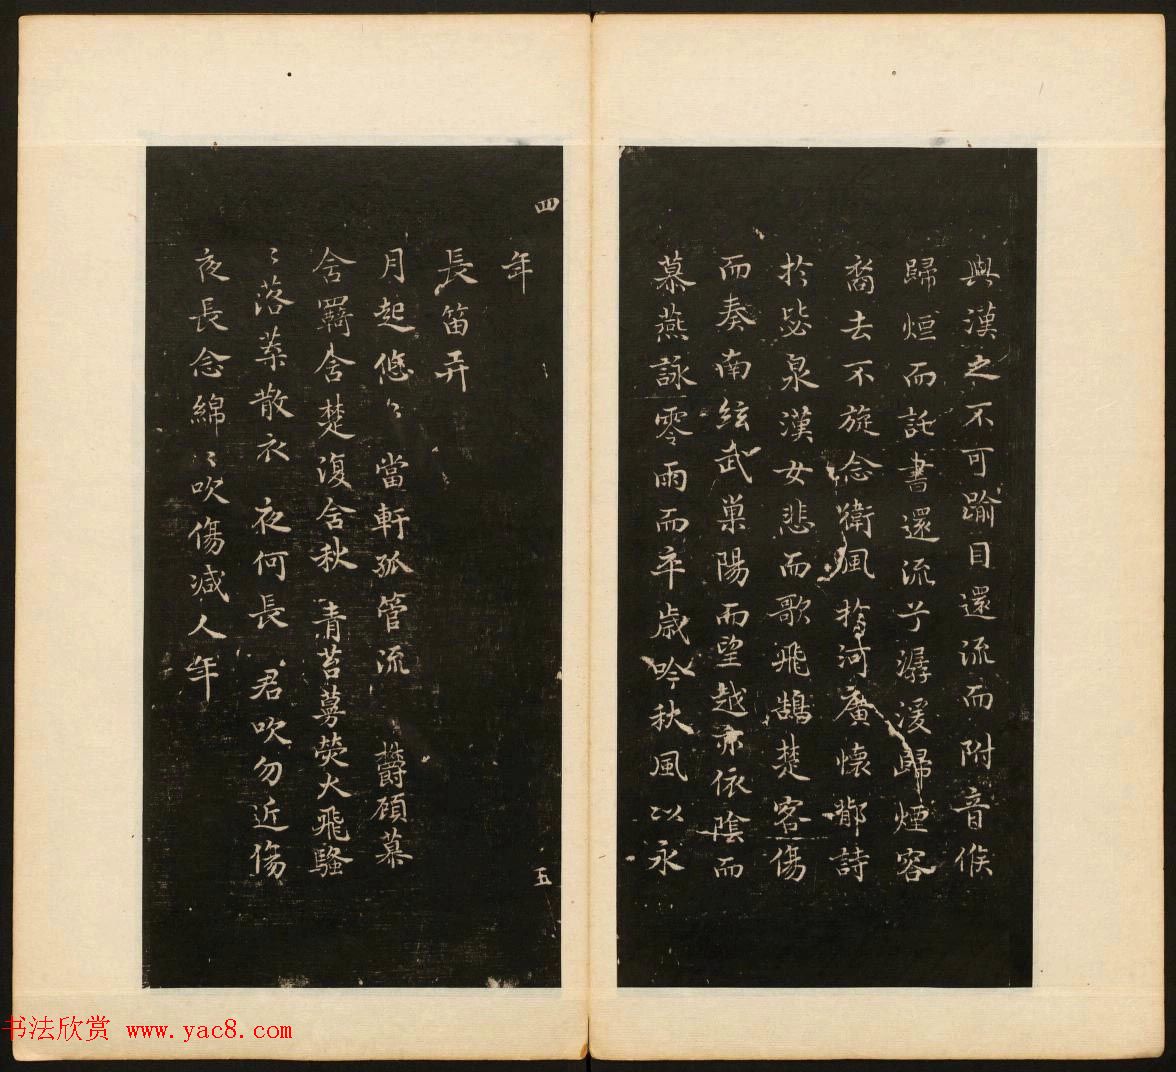 與漢之不可踰目還流而附音候
歸烜而託書還流兮潺湲歸煙容
裔去不旋念衛風於河廣懷鄁詩
於毖泉漢女悲而歌飛鵠楚客傷
而奏南絃武巢陽而望越亦依陰而
慕燕詠零雨而卒歲吟秋風以永
四
五
年
長笛弄
月起悠〻當軒孤管流 欝顧慕
含羇含楚復含秋 青苔蔓熒火飛騷
〻落葉散衣 夜何長 君吹勿近傷
夜長念綿〻吹傷減人年
书法欣赏 www.yac8.com